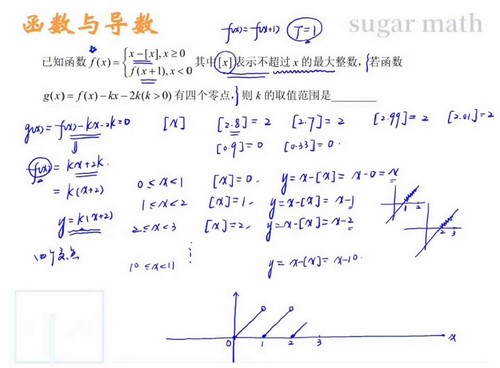 函数与导数
f(x)=f(x+1) T=1
sugar math
已知函数 f(x)={x-[x],x≥0
f(x+1),x<0 其中[x]表示不超过 x 的最大整数,若函数
g(x)=f(x)-kx-2k(k>0)有四个零点,则 k 的取值范围是________
g(x)=f(x)-kx-2k=0 [x] [2.8]=2 [2.7]=2 [2.99]=2 [2.01]=2
[0.9]=0 [0.33]=0.
f(x)=kx+2k.
=k(x+2) 0≤x<1 [x]=0. y=x-[x]=x-0=x
1≤x<2 [x]=1, y=x-[x]=x-1
y=k(x+2) 2≤x<3 [x]=2, y=x-[x]=x-2
1 2
2 3
四个交点
10≤x<11 y=x-[x]=x-10.
0 1 2 3 x